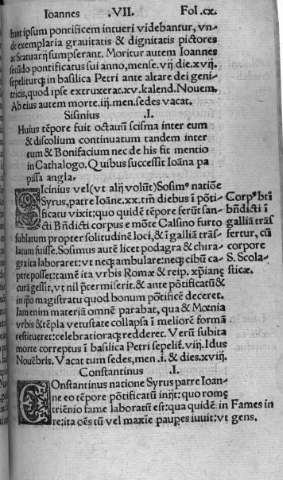 Ioannes .VII. Fol.cx.
hunt ipsum pontificem intueri videbantur, vn-
de exemplaria grauitatis & dignitatis pictores
ac statuarij sumpserint. Moritur autem Ioannes
secūdo pontificatus sui anno, mense. vij. die. xvij.
sepeliturq; in basilica Petri ante altare dei geni-
tricis, quod ipse extruxerat. xv. kalend. Nouem.
Ab eius autem morte. iij. men. sedes vacat.
Sisinius .I.
Huius tēpore fuit octauū scisma inter eum
& dioscolium continuatum tandem inter
eum & Bonifacium nec de his fit mentio
in Cathalogo. Quibus successit Ioāna pa
pissa angla.
Sicinius vel (vt alij volūt) Sosim⁹ natiōe
Syrus, patre Ioāne. xx. tm̄ diebus ī pōti-
ficatu vixit: quo quidē tēpore ferūt san-
cti Bn̄dicti corpus e mōte Cassino furto
sublatum propter solitudinē loci, & ī galliā trās
latum fuisse. Sosimus autē licet podagra & chira-
gra ita laboraret: vt neq; ambulare: neq; cibū ca-
pere posset: tamē ita vrbis Romæ & reip. xp̄ianę
curā gessit, vt nil p̄termiserit. & ante pōtificatū &
in ip̄o magistratu quod bonum pōtificē deceret.
Iam enim materiā omnē parabat, qua & Mœnia
vrbis & tēpla vetustate collapsa ī meliorē formā
restitueret: celebrationaq; redderet. Verū subita
morte correptus ī basilica Petri sepelit̃. viij. Idus
Nouēbris. Vacat tum sedes, men. i. & dies. xviij.
Corp⁹ bt̄i
bn̄dicti ī
galliā trās
fertur, cū
corpore
S. Scola-
sticæ.
Constantinus .I.
Constantinus natione Syrus patre Ioan-
ne eo tēpore pōtificatū inijt: quo romę
triēnio fame laboratū est: qua quidē in
re: ita oēs tū vel maxīe paupes iuuit: vt
Fames in
gens.